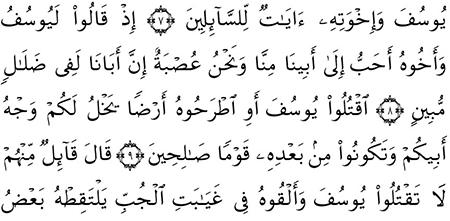 يُوسُفَ وَإِخْوَتِهِۦٓ ءَايَـٰتٌ لِّلسَّآئِلِينَ ﴿٧﴾ إِذْ قَالُوا۟ لَيُوسُفُ
وَأَخُوهُ أَحَبُّ إِلَىٰٓ أَبِينَا مِنَّا وَنَحْنُ عُصْبَةٌ إِنَّ أَبَانَا لَفِى ضَلَـٰلٍ
مُّبِينٍ ﴿٨﴾ ٱقْتُلُوا۟ يُوسُفَ أَوِ ٱطْرَحُوهُ أَرْضًا يَخْلُ لَكُمْ وَجْهُ
أَبِيكُمْ وَتَكُونُوا۟ مِنۢ بَعْدِهِۦ قَوْمًا صَـٰلِحِينَ ﴿٩﴾ قَالَ قَآئِلٌ مِّنْهُمْ
لَا تَقْتُلُوا۟ يُوسُفَ وَأَلْقُوهُ فِى غَيَـٰبَتِ ٱلْجُبِّ يَلْتَقِطْهُ بَعْضُ